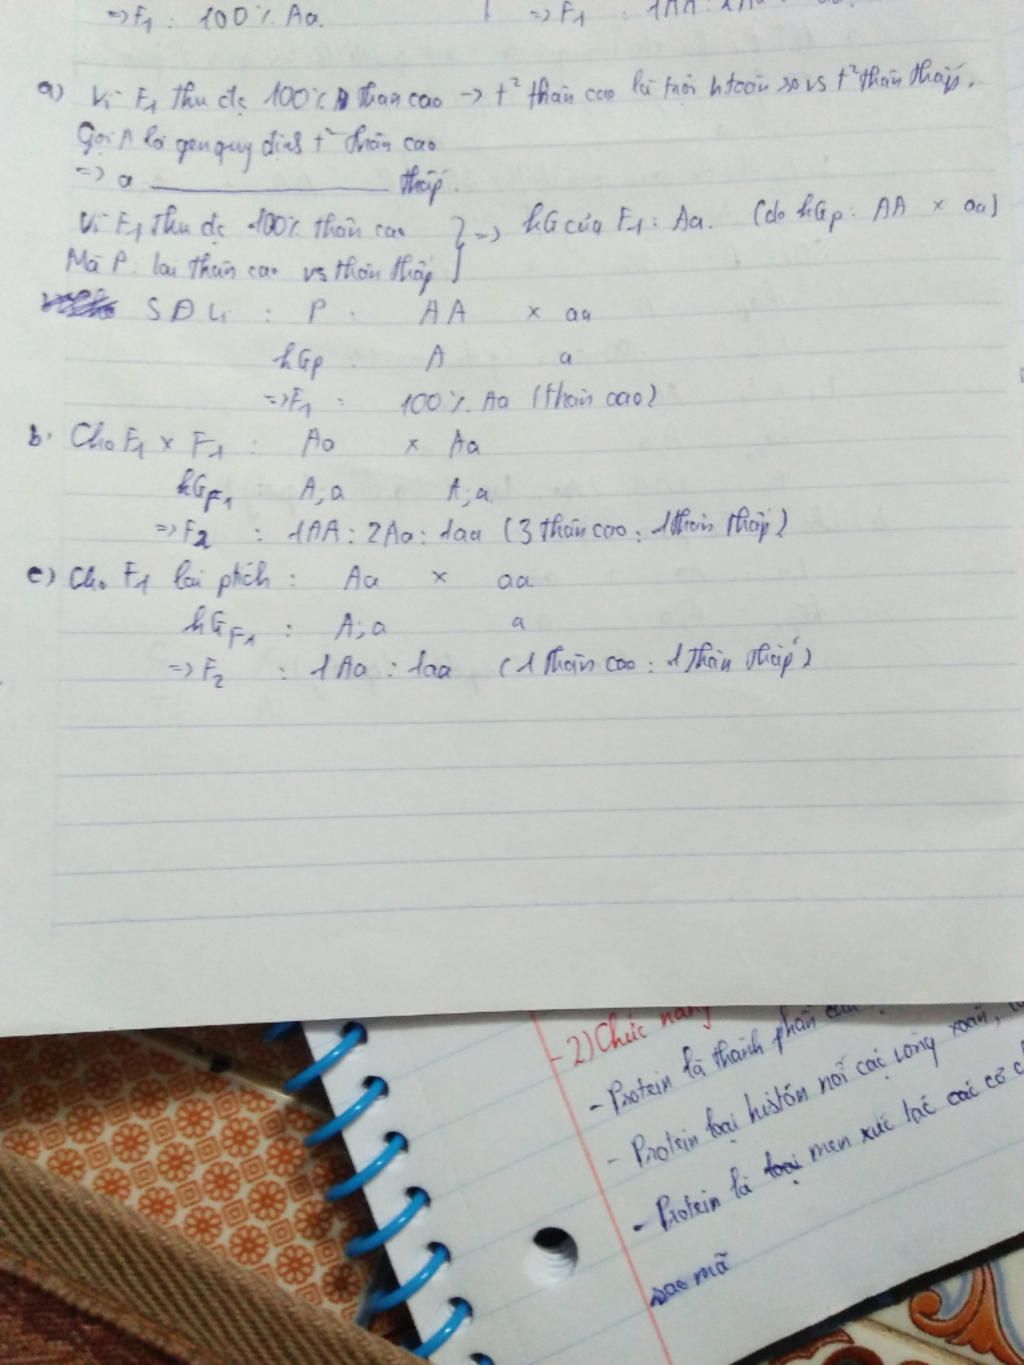 => F₁ : 100% Aa.
=> F₁ : 1AA : 2Aa
a) Vì F₁ thu đc 100% thân cao -> t² thân cao là trội htoàn so vs t² thân thấp.
Gọi A là gen quy định t² thân cao
=> a ———————— thấp.
Vì F₁ thu đc 100% thân cao
Mà P: lai thân cao vs thân thấp } => kG của F₁: Aa. (do kGp: AA × aa)
SĐL : P : AA × aa
kGp : A a
=> F₁ : 100% Aa (thân cao)
b. Cho F₁ × F₁ : Aa × Aa
kG F₁ : A;a A;a
=> F₂ : 1AA : 2Aa : 1aa (3 thân cao : 1 thân thấp)
c) Cho F₁ lai ptích : Aa × aa
kG F₁ : A;a a
=> F₂ : 1Aa : 1aa (1 thân cao : 1 thân thấp)
-2) Chức năng
- Protein là thành phần của
- Protein loại histôn nối các vòng xoắn,
- Protein là loại men xúc tác các cơ
sao mã